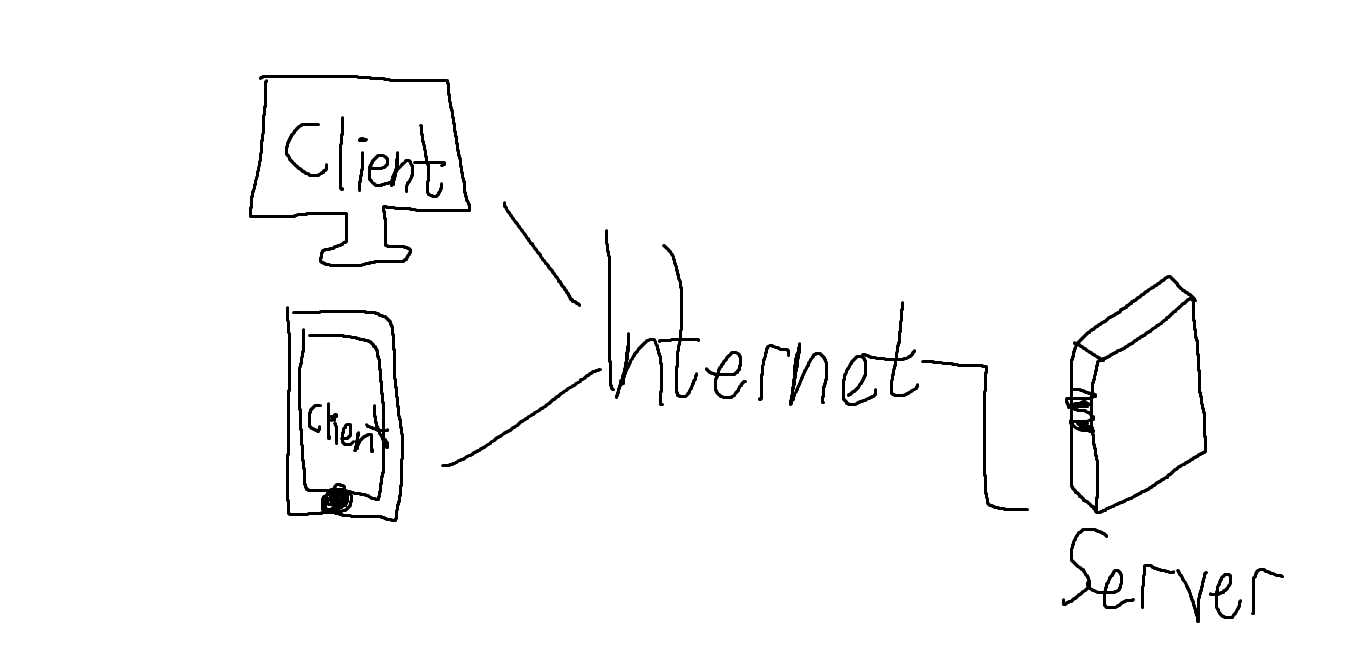 Client
Client
Internet
Server